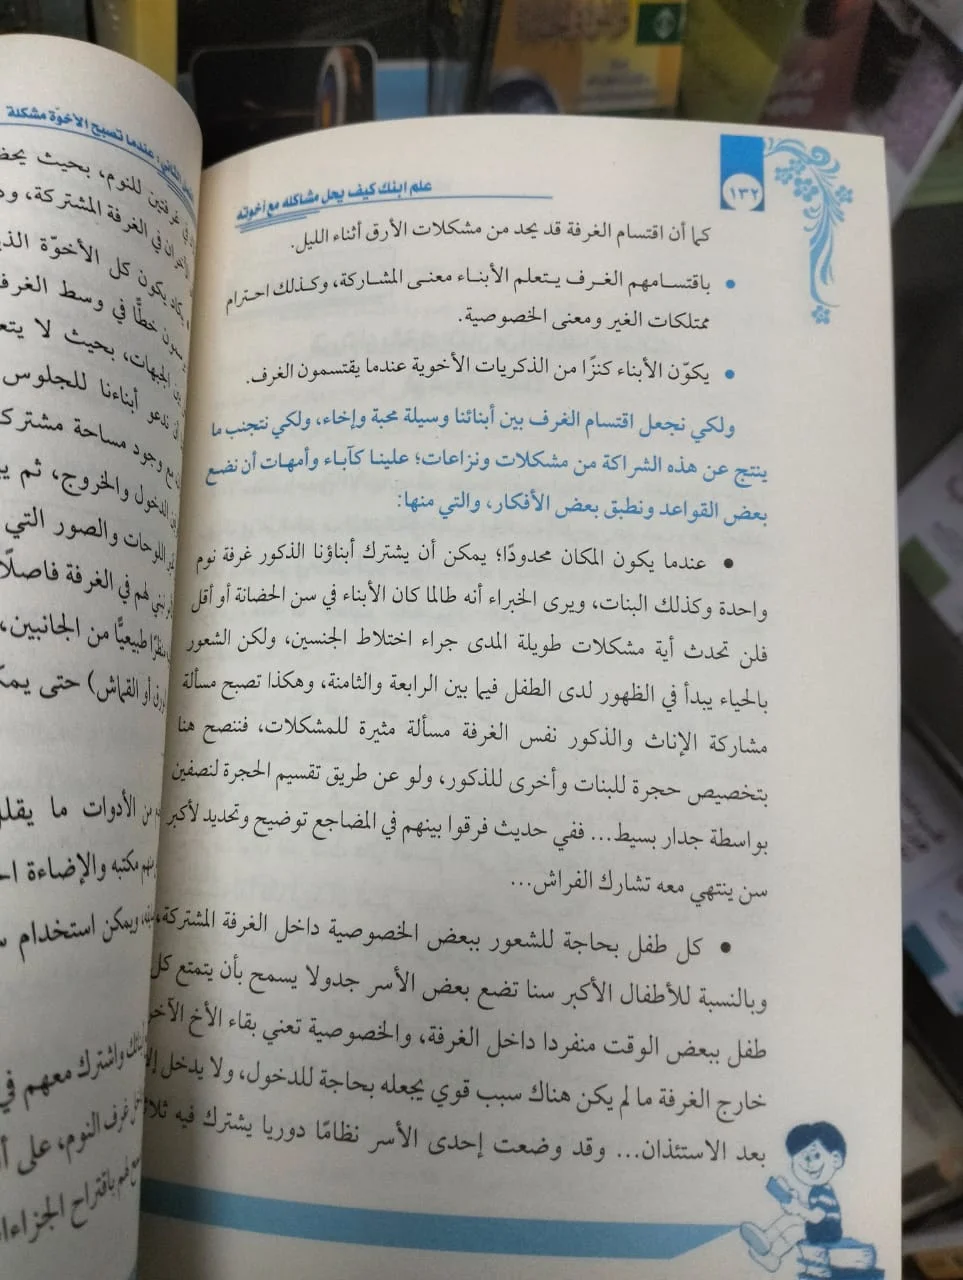 علم ابنك كيف يحل مشاكله مع أخوته
١٣٢
كما أن اقتسام الغرفة قد يحد من مشكلات الأرق أثناء الليل.
• باقتسامهم الغرف يتعلم الأبناء معنى المشاركة، وكذلك احترام
ممتلكات الغير ومعنى الخصوصية.
• يكوّن الأبناء كنزًا من الذكريات الأخوية عندما يقتسمون الغرف.
ولكي نجعل اقتسام الغرف بين أبنائنا وسيلة محبة وإخاء، ولكي نتجنب ما
ينتج عن هذه الشراكة من مشكلات ونزاعات؛ علينا كآباء وأمهات أن نضع
بعض القواعد ونطبق بعض الأفكار، والتي منها:
• عندما يكون المكان محدودًا؛ يمكن أن يشترك أبناؤنا الذكور غرفة نوم
واحدة وكذلك البنات، ويرى الخبراء أنه طالما كان الأبناء في سن الحضانة أو أقل
فلن تحدث أية مشكلات طويلة المدى جراء اختلاط الجنسين، ولكن الشعور
بالحياء يبدأ في الظهور لدى الطفل فيما بين الرابعة والثامنة، وهكذا تصبح مسألة
مشاركة الإناث والذكور نفس الغرفة مسألة مثيرة للمشكلات، فننصح هنا
بتخصيص حجرة للبنات وأخرى للذكور، ولو عن طريق تقسيم الحجرة لنصفين
بواسطة جدار بسيط... ففي حديث فرقوا بينهم في المضاجع توضيح وتحديد لأكبر
سن ينتهي معه تشارك الفراش...
• كل طفل بحاجة للشعور ببعض الخصوصية داخل الغرفة المشتركة،
وبالنسبة للأطفال الأكبر سنا تضع بعض الأسر جدولا يسمح بأن يتمتع كل
طفل ببعض الوقت منفردا داخل الغرفة، والخصوصية تعني بقاء الأخ الآخر
خارج الغرفة ما لم يكن هناك سبب قوي يجعله بحاجة للدخول، ولا يدخل إلا
بعد الاستئذان... وقد وضعت إحدى الأسر نظامًا دوريا يشترك فيه
عندما تصبح الأخوّة مشكلة
غرفتين للنوم، بحيث
في الغرفة المشتركة،
يكون كل الأخوّة
خطًّا في وسط
الجبهات، بحيث لا
ندعو أبناءنا للجلوس
مع وجود مساحة
الدخول والخروج، ثم
اللوحات والصور التي
لهم في الغرفة فاصلًا
طبيعيًّا من الجانبين،
أو القماش) حتى
من الأدوات ما يقلل
مكتبه والإضاءة
ويمكن استخدام
واشترك معهم في
غرف النوم، على
لهم باقتراح